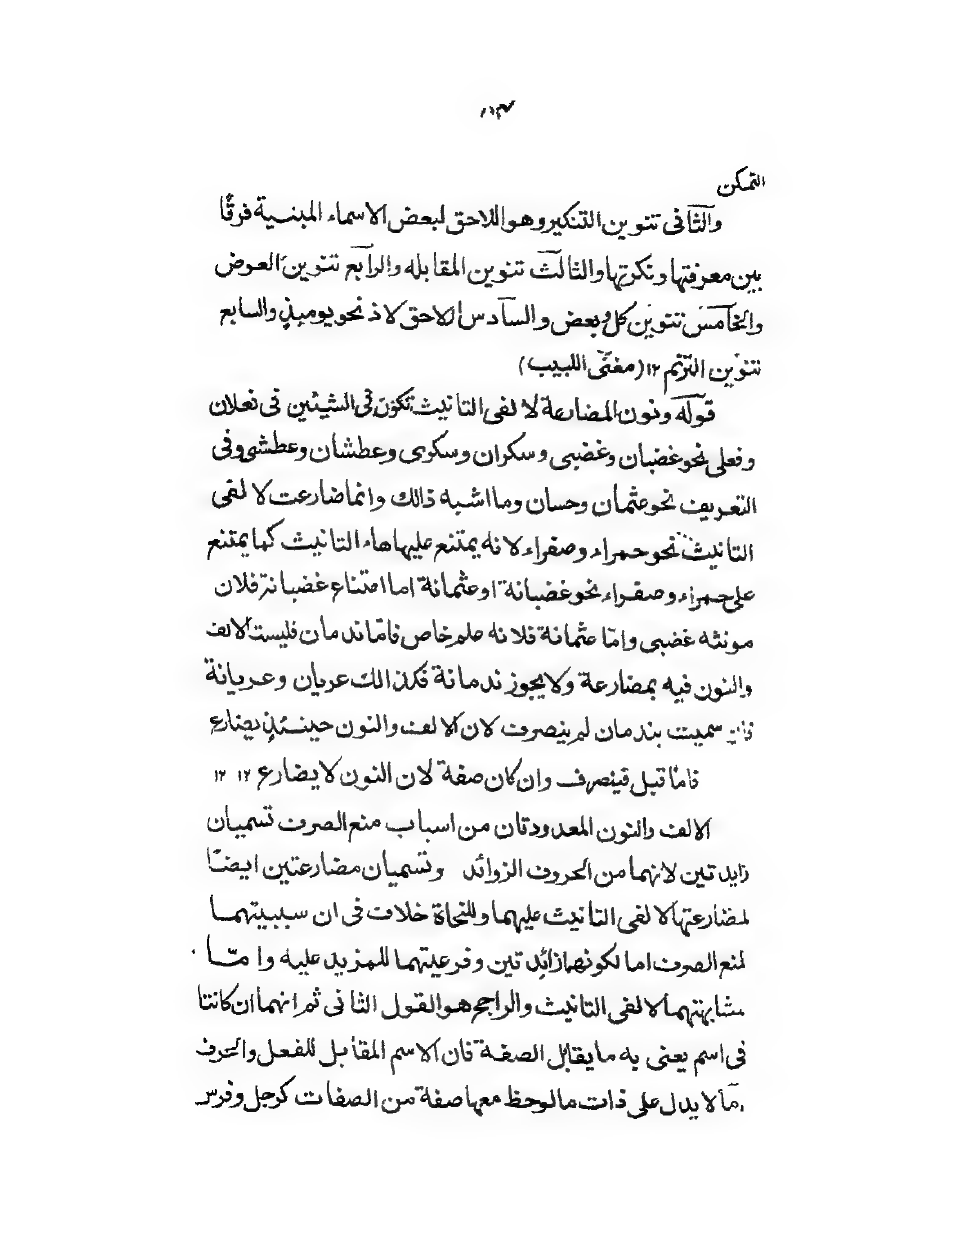 التمكن
والثانى تنوين التنكير وهو اللاحق لبعض الاسماء المبنية فرقًا
بين معرفتها ونكرتها والثالث تنوين المقابله والرابع تنوين العوض
والخامس تنوين كل وبعض والسادس اللاحق لاذ نحو يومئذٍ والسابع
تنوين الترنم ١٢ (مغنى اللبيب)
قوله ونون المضارعة لالفى التانيث تكون فى الشيئين فى فعلان
وفعلى نحو غضبان وغضبى وسكران وسكرى وعطشان وعطشى وفى
التعريف نحو عثمان وحسان وما اشبه ذالك وانما ضارعت لالفى
التانيث نحو حمراء وصفراء لانه يمتنع عليها هاء التانيث كما يمتنع
على حمراء وصفراء نحو غضبانة او عثمانة اما امتناع غضبانة فلان
مونثه غضبى واما عثمانة فلانه علم خاص فامّا ندمان فليست الالف
والنون فيه بمضارعة ولا يجوز ندمانة فكذالك عريان وعريانة
فان سميت بندمان لم ينصرف لان الالف والنون حينئذٍ يضارع
فامّا قبل فينصرف وان كان صفة لان النون لا يضارع ١٢ ١٢
الالف والنون المعدودتان من اسباب منع الصرف تسميان
زايدتين لانهما من الحروف الزوائد وتسميان مضارعتين ايضًا
لمضارعتها لالفى التانيث عليهما وللنحاة خلاف فى ان سببيتهما
لمنع الصرف اما لكونهما زائدتين وفرعيتهما للمزيد عليه وامّا
مشابهتهما لالفى التانيث والراجح هو القول الثانى ثم انهما ان كانتا
فى اسم يعنى به ما يقابل الصفة فان الاسم المقابل للفعل والحرف
ما لا يدل على ذات ما لوحظ معها صفة من الصفات كرجل وفرس